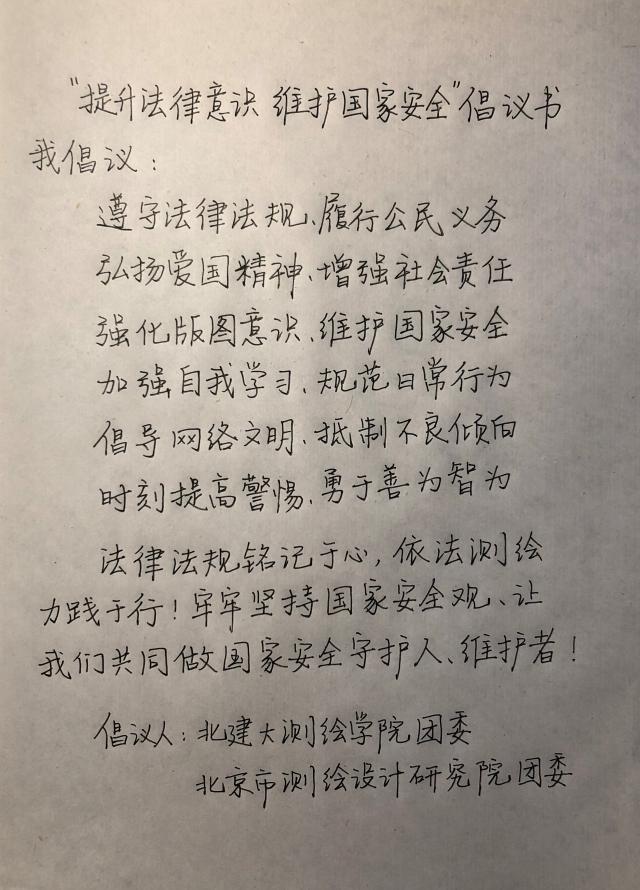 “提升法律意识 维护国家安全”倡议书
我倡议：
遵守法律法规、履行公民义务
弘扬爱国精神、增强社会责任
强化版图意识、维护国家安全
加强自我学习、规范日常行为
倡导网络文明、抵制不良倾向
时刻提高警惕、勇于善为智为
法律法规铭记于心，依法测绘
力践于行！牢牢坚持国家安全观、让
我们共同做国家安全守护人、维护者！
倡议人：北建大测绘学院团委
北京市测绘设计研究院团委